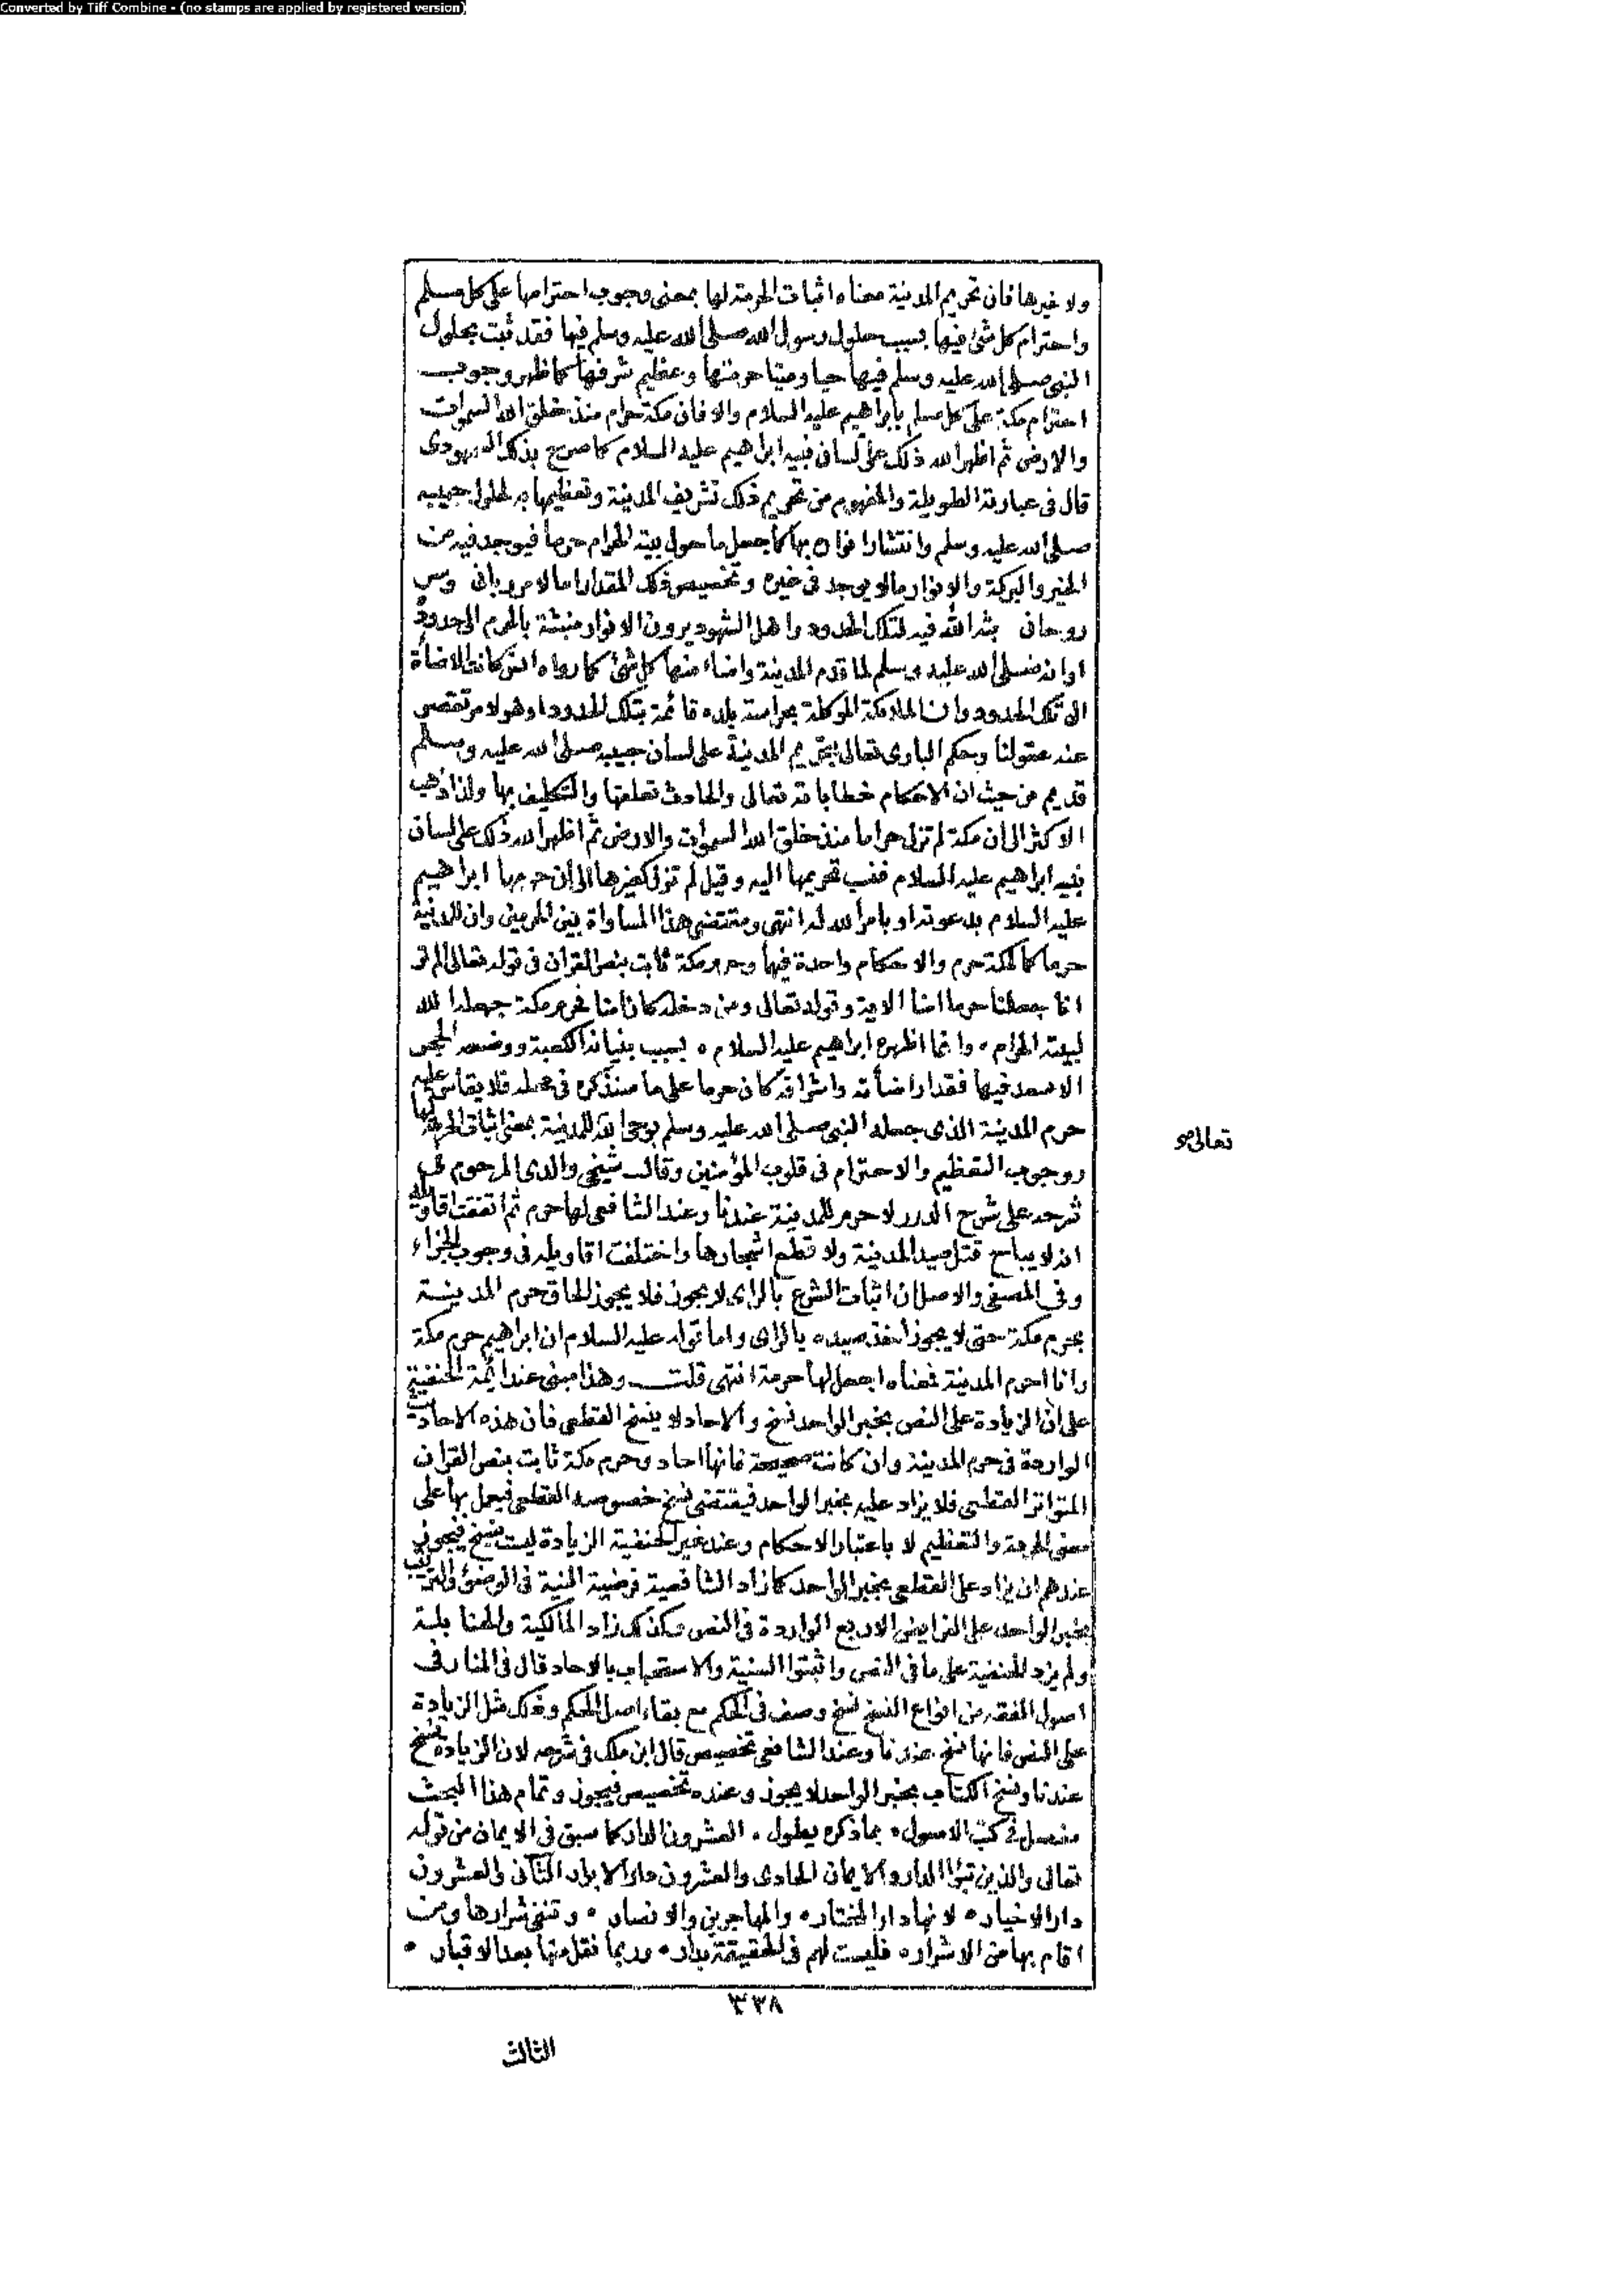 Converted by Tiff Combine - (no stamps are applied by registered version)
ولا غيرها فان تحريم المدينة معناه اثبات الحرمة لها بمعنى وجوب احترامها على كل مسلم
واحترام كل شئ فيها بسبب حلول رسول الله صلى الله عليه وسلم فيها فقد ثبت بحلول
النبي صلى الله عليه وسلم فيها حيا وميتا حرمتها وعظيم شرفها كما ظهر وجوب
احترام مكة على كل مسلم بابراهيم عليه السلام والا فان مكة حرام منذ خلق الله السموات
والارض ثم اظهر الله ذلك على لسان نبيه ابراهيم عليه السلام كما صرح بذلك السمهودى
قال فى عبارته الطويلة والمفهوم من تحريم ذلك تشريف المدينة وتعظيمها به لحلول حبيبه
صلى الله عليه وسلم وانتشار انواره بها كما جعل ما حول بيته الحرام حرما فيوجد فيه من
الخير والبركة والانوار مالا يوجد فى غيره وتخصيص ذلك المقدار اما لامر ربانى وسر
روحانى بثه الله فيه لتلك الحدود واهل الشهود يرون الانوار منبثة بالحرم الى حدوده
او انه صلى الله عليه وسلم لما قدم المدينة واضاء منها كل شئ كما رواه انس كانت الاضاة
الى تلك الحدود وان الملائكة الموكلة بحراسة بلده قائمة بتلك الحدود او هو لامر تقصر
عنه عقولنا وحكم البارى تعالى بتحريم المدينة على لسان حبيبه صلى الله عليه وسلم
قديم من حيث ان الاحكام خطاباته تعالى والحادث تعلقها والتكليف بها ولذا ذهب
الاكثر الى ان مكة لم تزل حراما منذ خلق الله السموات والارض ثم اظهر الله ذلك على لسان
نبيه ابراهيم عليه السلام فنسب تحريمها اليه وقيل لم تزل كغيرها الى ان حرمها ابراهيم
عليه السلام بدعوته او بامر الله له انتهى ومقتضى هذا المساواة بين الحرمين وان للمدينة
حرما كما لمكة حرم والاحكام واحدة فيهما وحرم مكة ثابت بنص القران فى قوله تعالى الم تر
انا جعلنا حرما امنا الاية وقوله تعالى ومن دخله كان امنا فحرم مكة جعله الله
لبيته الحرام • وانما اظهره ابراهيم عليه السلام • بسبب بنيانه الكعبة ووضعه الحجر
الاسعد فيها فقدار اضأته واشراقه كان حرما على ما سنذكره فى محله فلا يقاس عليه
حرم المدينة الذى جعله النبي صلى الله عليه وسلم بوحى الله للمدينة بمعنى اثبات الحرمة لها
تعالى صح
ووجوب التعظيم والاحترام فى قلوب المؤمنين وقال شيخى والدى المرحوم فى
شرحه على شرح الدرر لا حرم للمدينة عندنا وعند الشافعى لها حرم ثم اتفقت اقاويله
انه لا يباح قتل صيد المدينة ولا قطع اشجارها واختلفت اقاويله فى وجوب الجزاء
وفى المصفى والاصل ان اثبات الشرع بالراى لا يجوز فلا يجوز الحاق حرم المدينة
بحرم مكة حتى لا يجوز اخذ صيده بالراى واما قوله عليه السلام ان ابراهيم حرم مكة
وانا احرم المدينة فمعناه اجعل لها حرمة انتهى قلت وهذا مبنى عند ايمة الحنفية
على ان الزيادة على النص بخبر الواحد نسخ والاحاد لا ينسخ القطعى فان هذه الاحاديث
الواردة فى حرم المدينة وان كانت صحيحة فانها احاد وحرم مكة ثابت بنص القران
المتواتر القطعى فلا يزاد عليه بخبر الواحد فيقتضى نسخ خصوصه القطعى فيعمل بها على
معنى الحرمة والتعظيم لا باعتبار الاحكام وعند غير الحنفية الزيادة ليست بنسخ فيجوز
عندهم ان يزاد على القطعى بخبر الواحد كما زاد الشافعية فرضية النية فى الوضئ والترتيب
بخبر الواحد على الفرايض الاربع الواردة فى النص وكذلك زاد المالكية والحنابلة
ولم يزد الحنفية على ما فى النص واثبتوا السنية والاستحباب بالاحاد قال فى المنار فى
اصول الفقه من انواع النسخ نسخ وصف فى الحكم مع بقاء اصل الحكم وذلك مثل الزيادة
على النص فانها نسخ عندنا وعند الشافعى تخصيص قال ابن ملك فى شرحه لان الزيادة نسخ
عندنا ونسخ الكتاب بخبر الواحد لا يجوز وعنده تخصيص فيجوز وتمام هذا المبحث
مفصل فى كتب الاصول • بما ذكره يطول • العشرون الدار كما سبق فى الايمان من قوله
تعالى والذين تبوؤا الدار والايمان الحادى والعشرون دار الابرار الثانى والعشرون
دار الاخيار • لانها دار المختار • والمهاجرين والانصار • وتنفى شرارها ومن
اقام بها من الاشرار • فليست لهم فى الحقيقة بدار • وربما نقل منها بعد الاقبار •
٣٣٨
الثالث